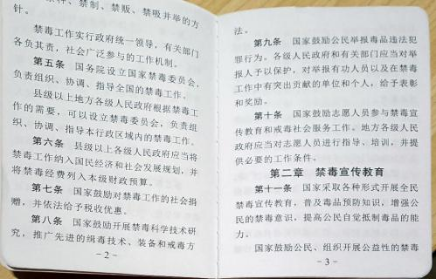 禁种、禁制、禁贩、禁吸并举的方
针。
禁毒工作实行政府统一领导，有关部门
各负其责，社会广泛参与的工作机制。
第五条　国务院设立国家禁毒委员会，
负责组织、协调、指导全国的禁毒工作。
县级以上地方各级人民政府根据禁毒工
作的需要，可以设立禁毒委员会，负责组
织、协调、指导本行政区域内的禁毒工作。
第六条　县级以上各级人民政府应当将
禁毒工作纳入国民经济和社会发展规划，并
将禁毒经费列入本级财政预算。
第七条　国家鼓励对禁毒工作的社会捐
赠，并依法给予税收优惠。
第八条　国家鼓励开展禁毒科学技术研
究，推广先进的缉毒技术、装备和戒毒方
- 2 -
法。
第九条　国家鼓励公民举报毒品违法犯
罪行为。各级人民政府和有关部门应当对举
报人予以保护，对举报有功人员以及在禁毒
工作中有突出贡献的单位和个人，给予表彰
和奖励。
第十条　国家鼓励志愿人员参与禁毒宣
传教育和戒毒社会服务工作。地方各级人民
政府应当对志愿人员进行指导、培训，并提
供必要的工作条件。
第二章　禁毒宣传教育
第十一条　国家采取各种形式开展全民
禁毒宣传教育，普及毒品预防知识，增强公
民的禁毒意识，提高公民自觉抵制毒品的能
力。
国家鼓励公民、组织开展公益性的禁毒
- 3 -